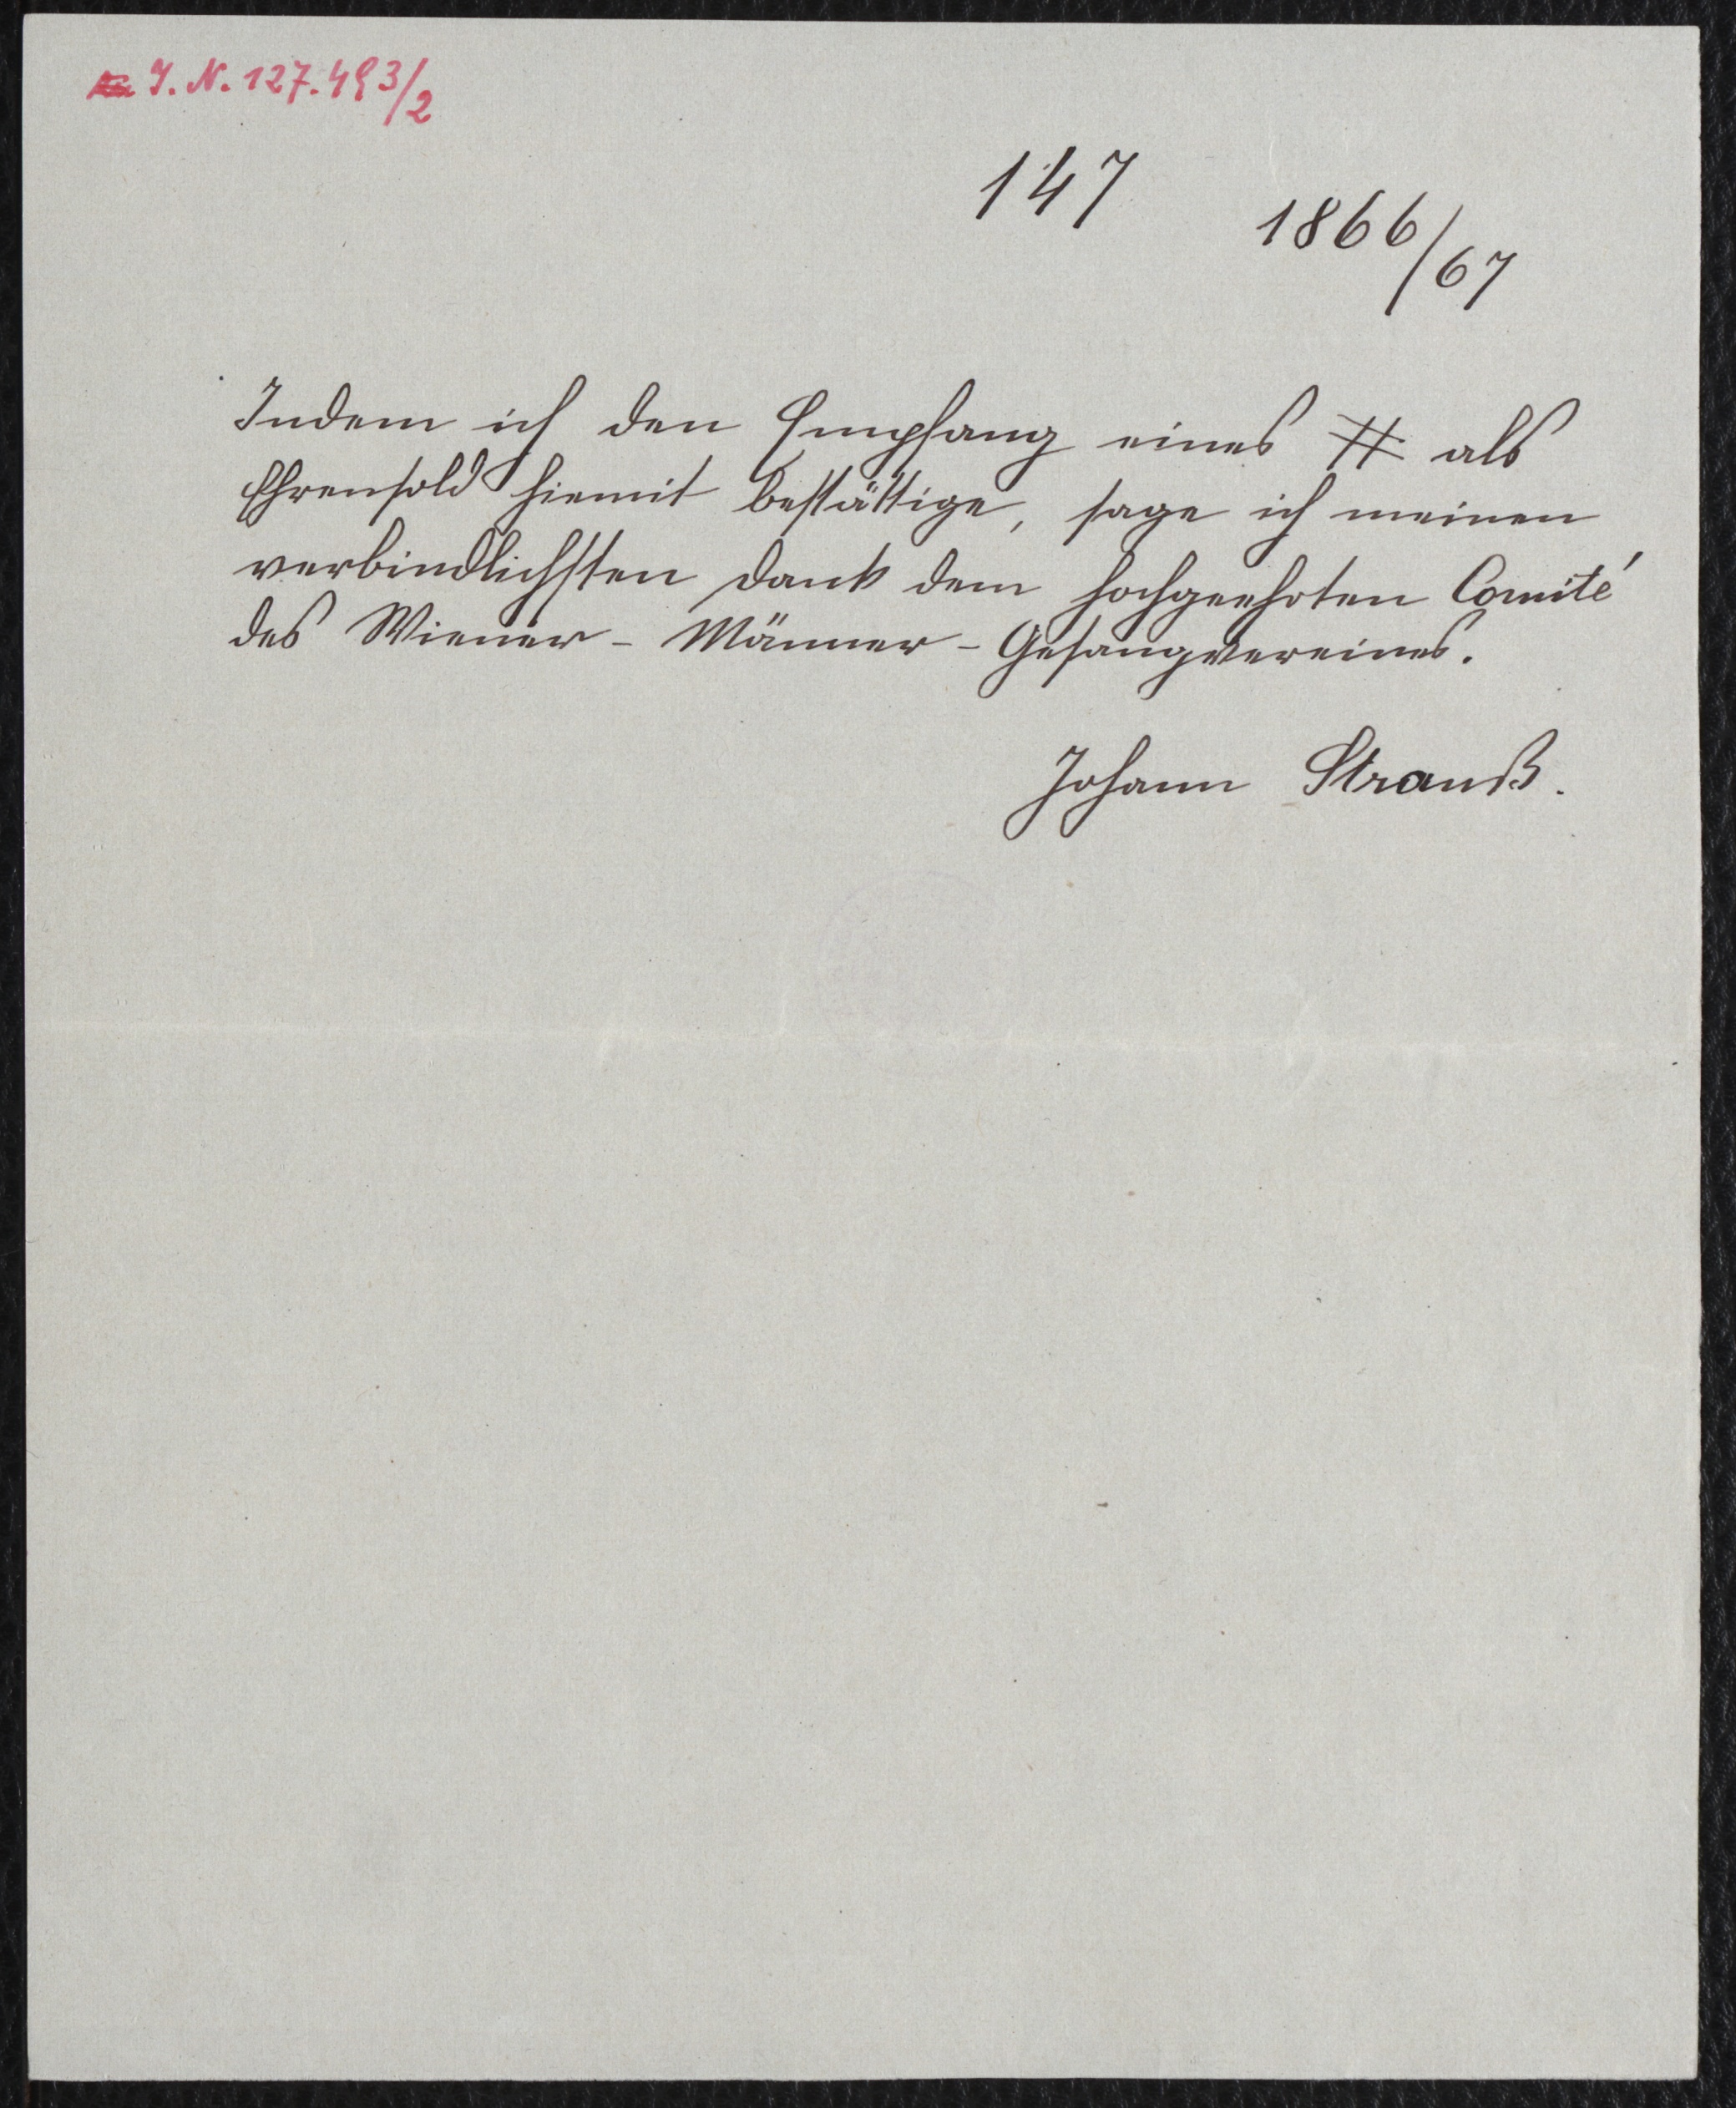 I. N. 127.493/2
147
1866/67
Indem ich den Empfang eines # als
Ehrensold hiemit bestättige, sage ich meinen
verbindlichsten Dank dem hochgeehrten Comité
des Wiener - Männer - Gesangvereines.
Johann Strauß.